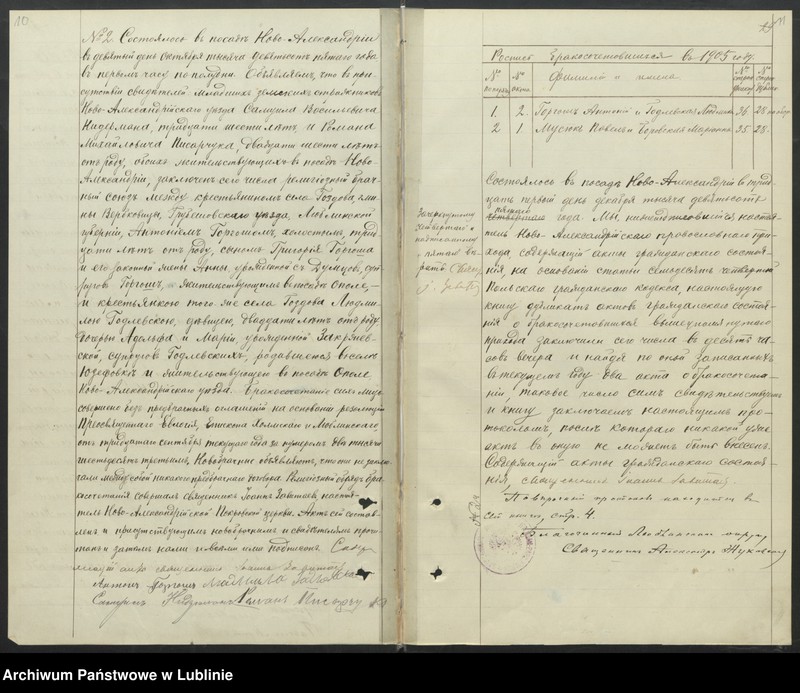 10
№ 2. Состоялось въ посадѣ Ново-Александріи
въ девятый день октября тысяча девятьсотъ пятаго года
въ первомъ часу по полудни. Объявляемъ, что въ при-
сутствіи свидѣтелей младшихъ земскихъ стражниковъ
Ново-Александрійскаго уѣзда Самуила Васильевича
тридцати шести лѣтъ, и Романа
Михайловича Писарчука, двадцати шести лѣтъ
отъ роду, обоихъ жительствующихъ въ посадѣ Ново-
Александріи, заключенъ сего числа религіозный брач-
ный союзъ между крестьяниномъ села Гоздова, гми-
ны Вербковицы, Грубешовскаго уѣзда, Люблинской
губерніи, Антономъ Торгошомъ, холостымъ, трид-
цати лѣтъ отъ роду, сыномъ Григорія Торгоша
и его законной жены Анны, урожденной съ суп-
руговъ Торгошъ, жительствующимъ въ посадѣ Ополе,
и крестьянкою того же села Гоздова Людми-
лою Годлевскою, дѣвицею, двадцати лѣтъ отъ роду
дочерью Адольфа и Маріи, урожденной Закржев-
ской, супруговъ Годлевскихъ, родившеюся въ селѣ
Юзефовкѣ и жительствующею въ посадѣ Ополе
Ново-Александрійскаго уѣзда. Бракосочетаніе сіе
совершено безъ предбрачныхъ оглашеній на основаніи резолюціи
Преосвященнаго Евлогія, Епископа Холмскаго и Люблинскаго
отъ тридцатаго сентября текущаго года за нумеромъ два тысячи
шестьдесятъ третьимъ. Новобрачные объявляютъ, что они не заклю-
чали между собой никакого предбрачнаго договора. Религіозный обрядъ бра-
косочетанія совершилъ священникъ Іоаннъ настоя-
тель Ново-Александрійской Покровской церкви. Актъ сей состав-
ленъ и присутствующимъ новобрачнымъ и свидѣтелямъ прочи-
танъ и затѣмъ нами и всѣми ими подписанъ.
священникъ Іоаннъ
Антонъ Торгошъ
Романъ Писарчукъ
11
Роспись Бракосочетавшихся въ 1905 году.
№ № акта. Фамиліи и имена №
1. 2. Торгошъ Антоній и Годлевская Людмила 26. 28
2 1 Мусюкъ Павелъ и 25. 28.
Состоялось въ посадѣ Ново-Александріи въ трид-
цать первый день декабря тысяча девятьсотъ
пятаго
четвертаго года. Мы, нижеподписавшійся настоя-
тель Ново-Александрійскаго православнаго при-
хода, содержащій акты гражданскаго состоя-
нія, на основаніи статьи семьдесятъ четвертой
Польскаго гражданскаго кодекса, настоящую
книгу дубликатъ актовъ гражданскаго состоя-
нія о бракосочетавшихся вышеупомянутаго
прихода заключили сего числа въ десять ча-
совъ вечера и найдя по оной записанныхъ
въ текущемъ году два акта о бракосочета-
ніи, таковое число симъ свидѣтельствуемъ
и книгу заключаемъ настоящимъ про-
токоломъ, послѣ котораго никакой уже
актъ въ оную не можетъ быть внесенъ.
Содержащій акты гражданскаго состоя-
нія, священникъ Іоаннъ
Зачеркнутому
четвертаго и
надписанному
пятаго вѣ-
рить.
протоколъ находится въ
сей книгѣ, стр. 4.
Благочинный Люблинскаго округа,
Священникъ Александръ
Archiwum Państwowe w Lublinie